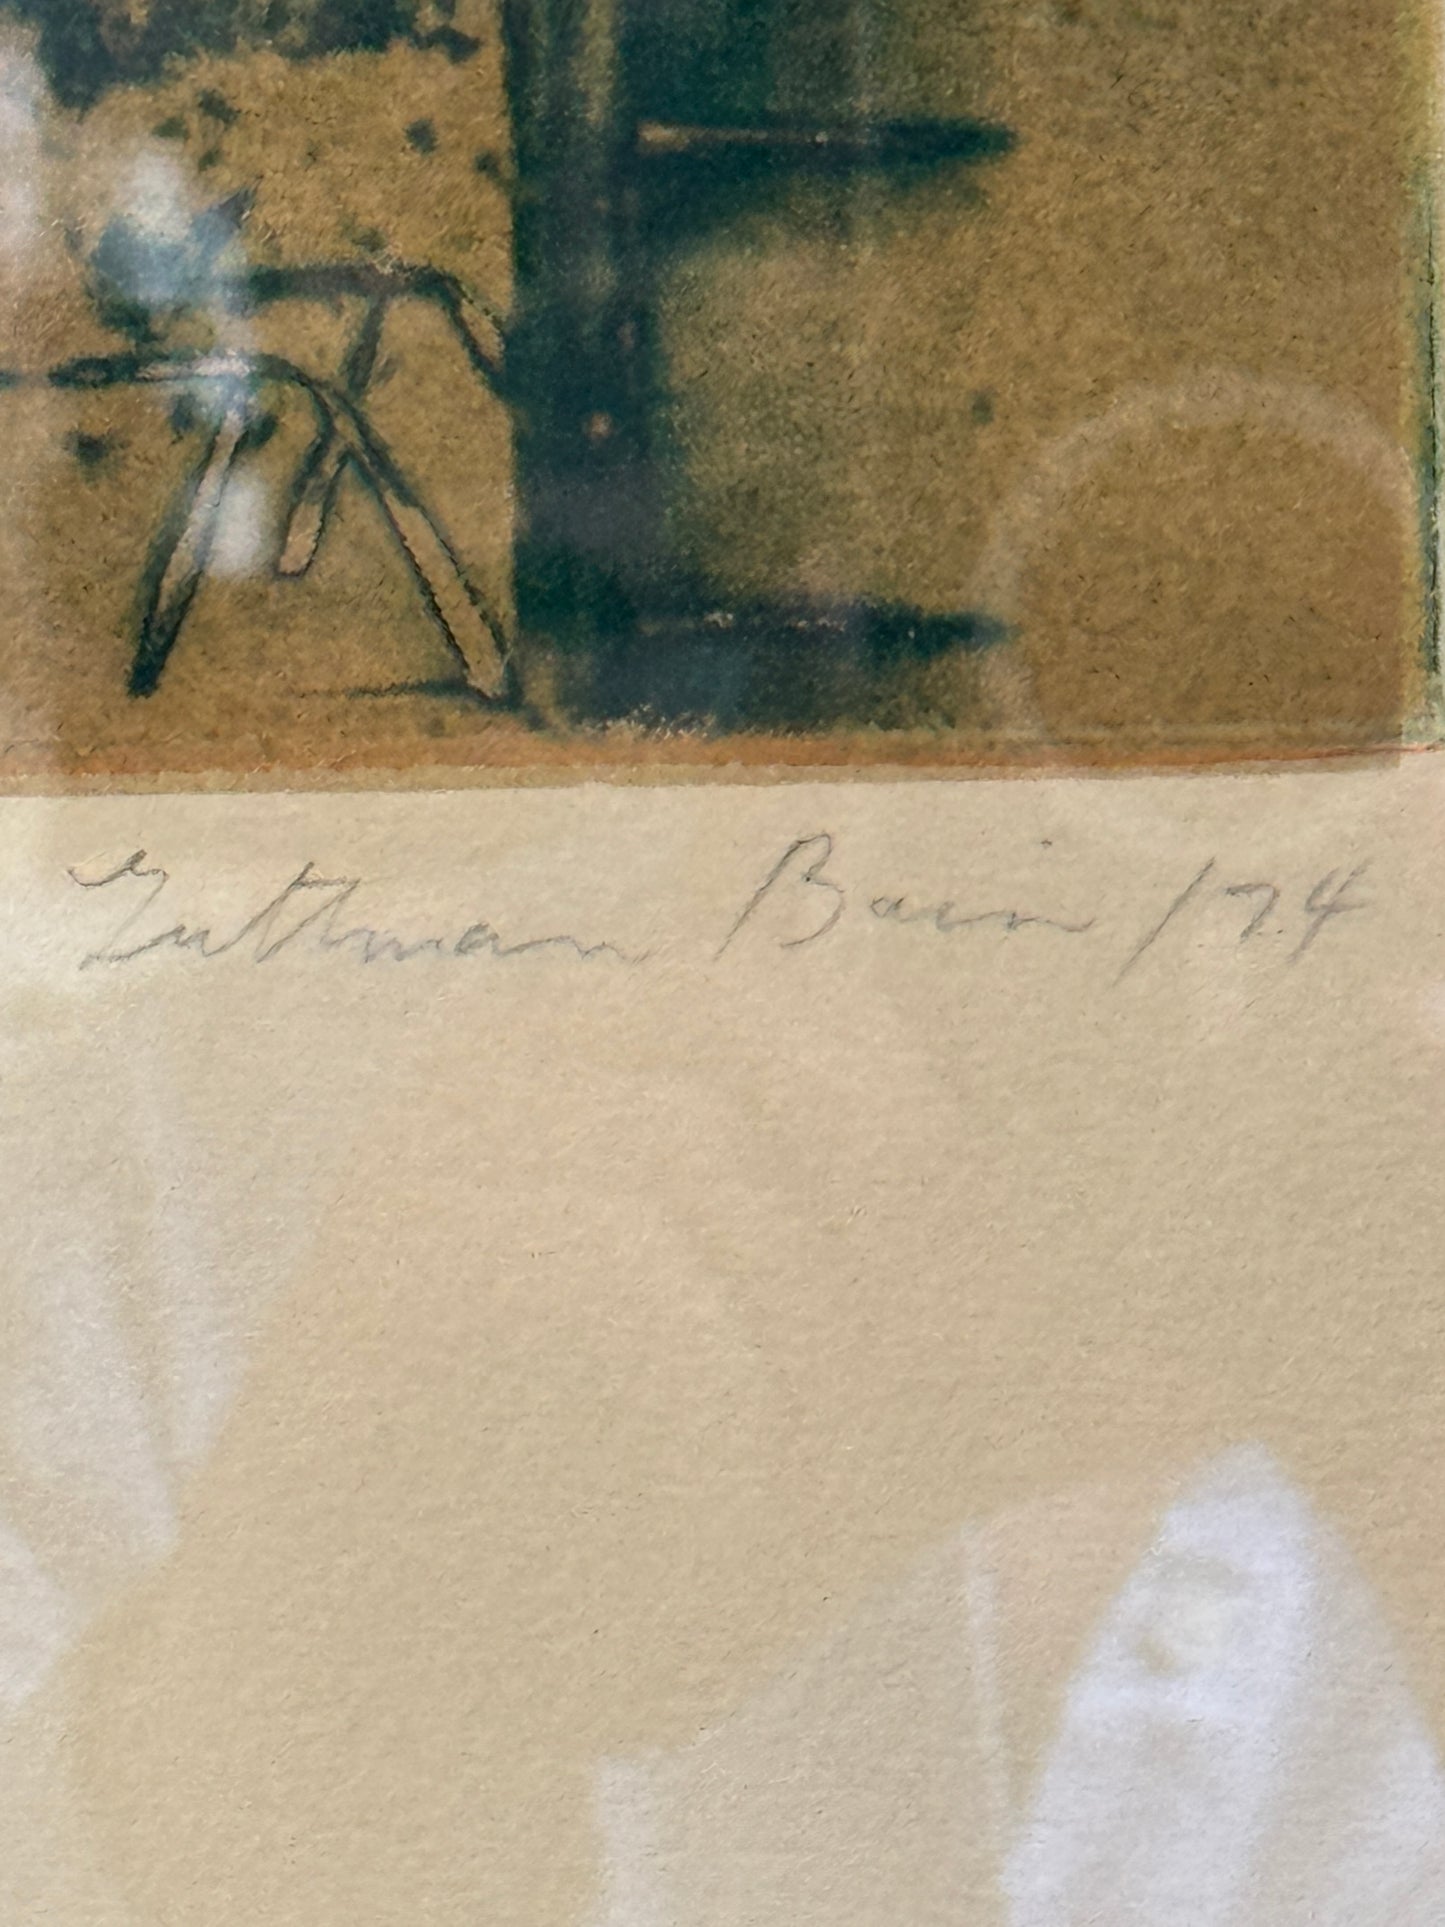 Guttman Bain /74